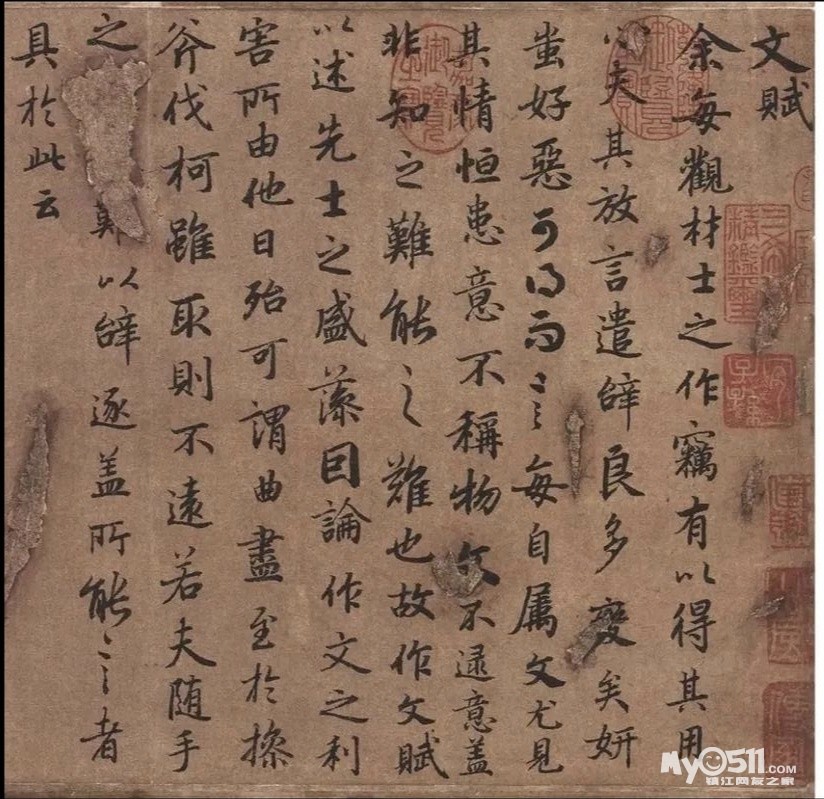 文賦
余每觀材士之作竊有以得其用
心夫其放言遣辭良多變矣妍
蚩好惡可得而言每自属文尤見
其情恒患意不稱物文不逮意盖
非知之難能之難也故作文賦
以述先士之盛藻因論作文之利
害所由他日殆可謂曲盡至於操
斧伐柯雖取則不遠若夫随手
之難以辭逐盖所能言者
具於此云
My0511.COM
镇江网友之家